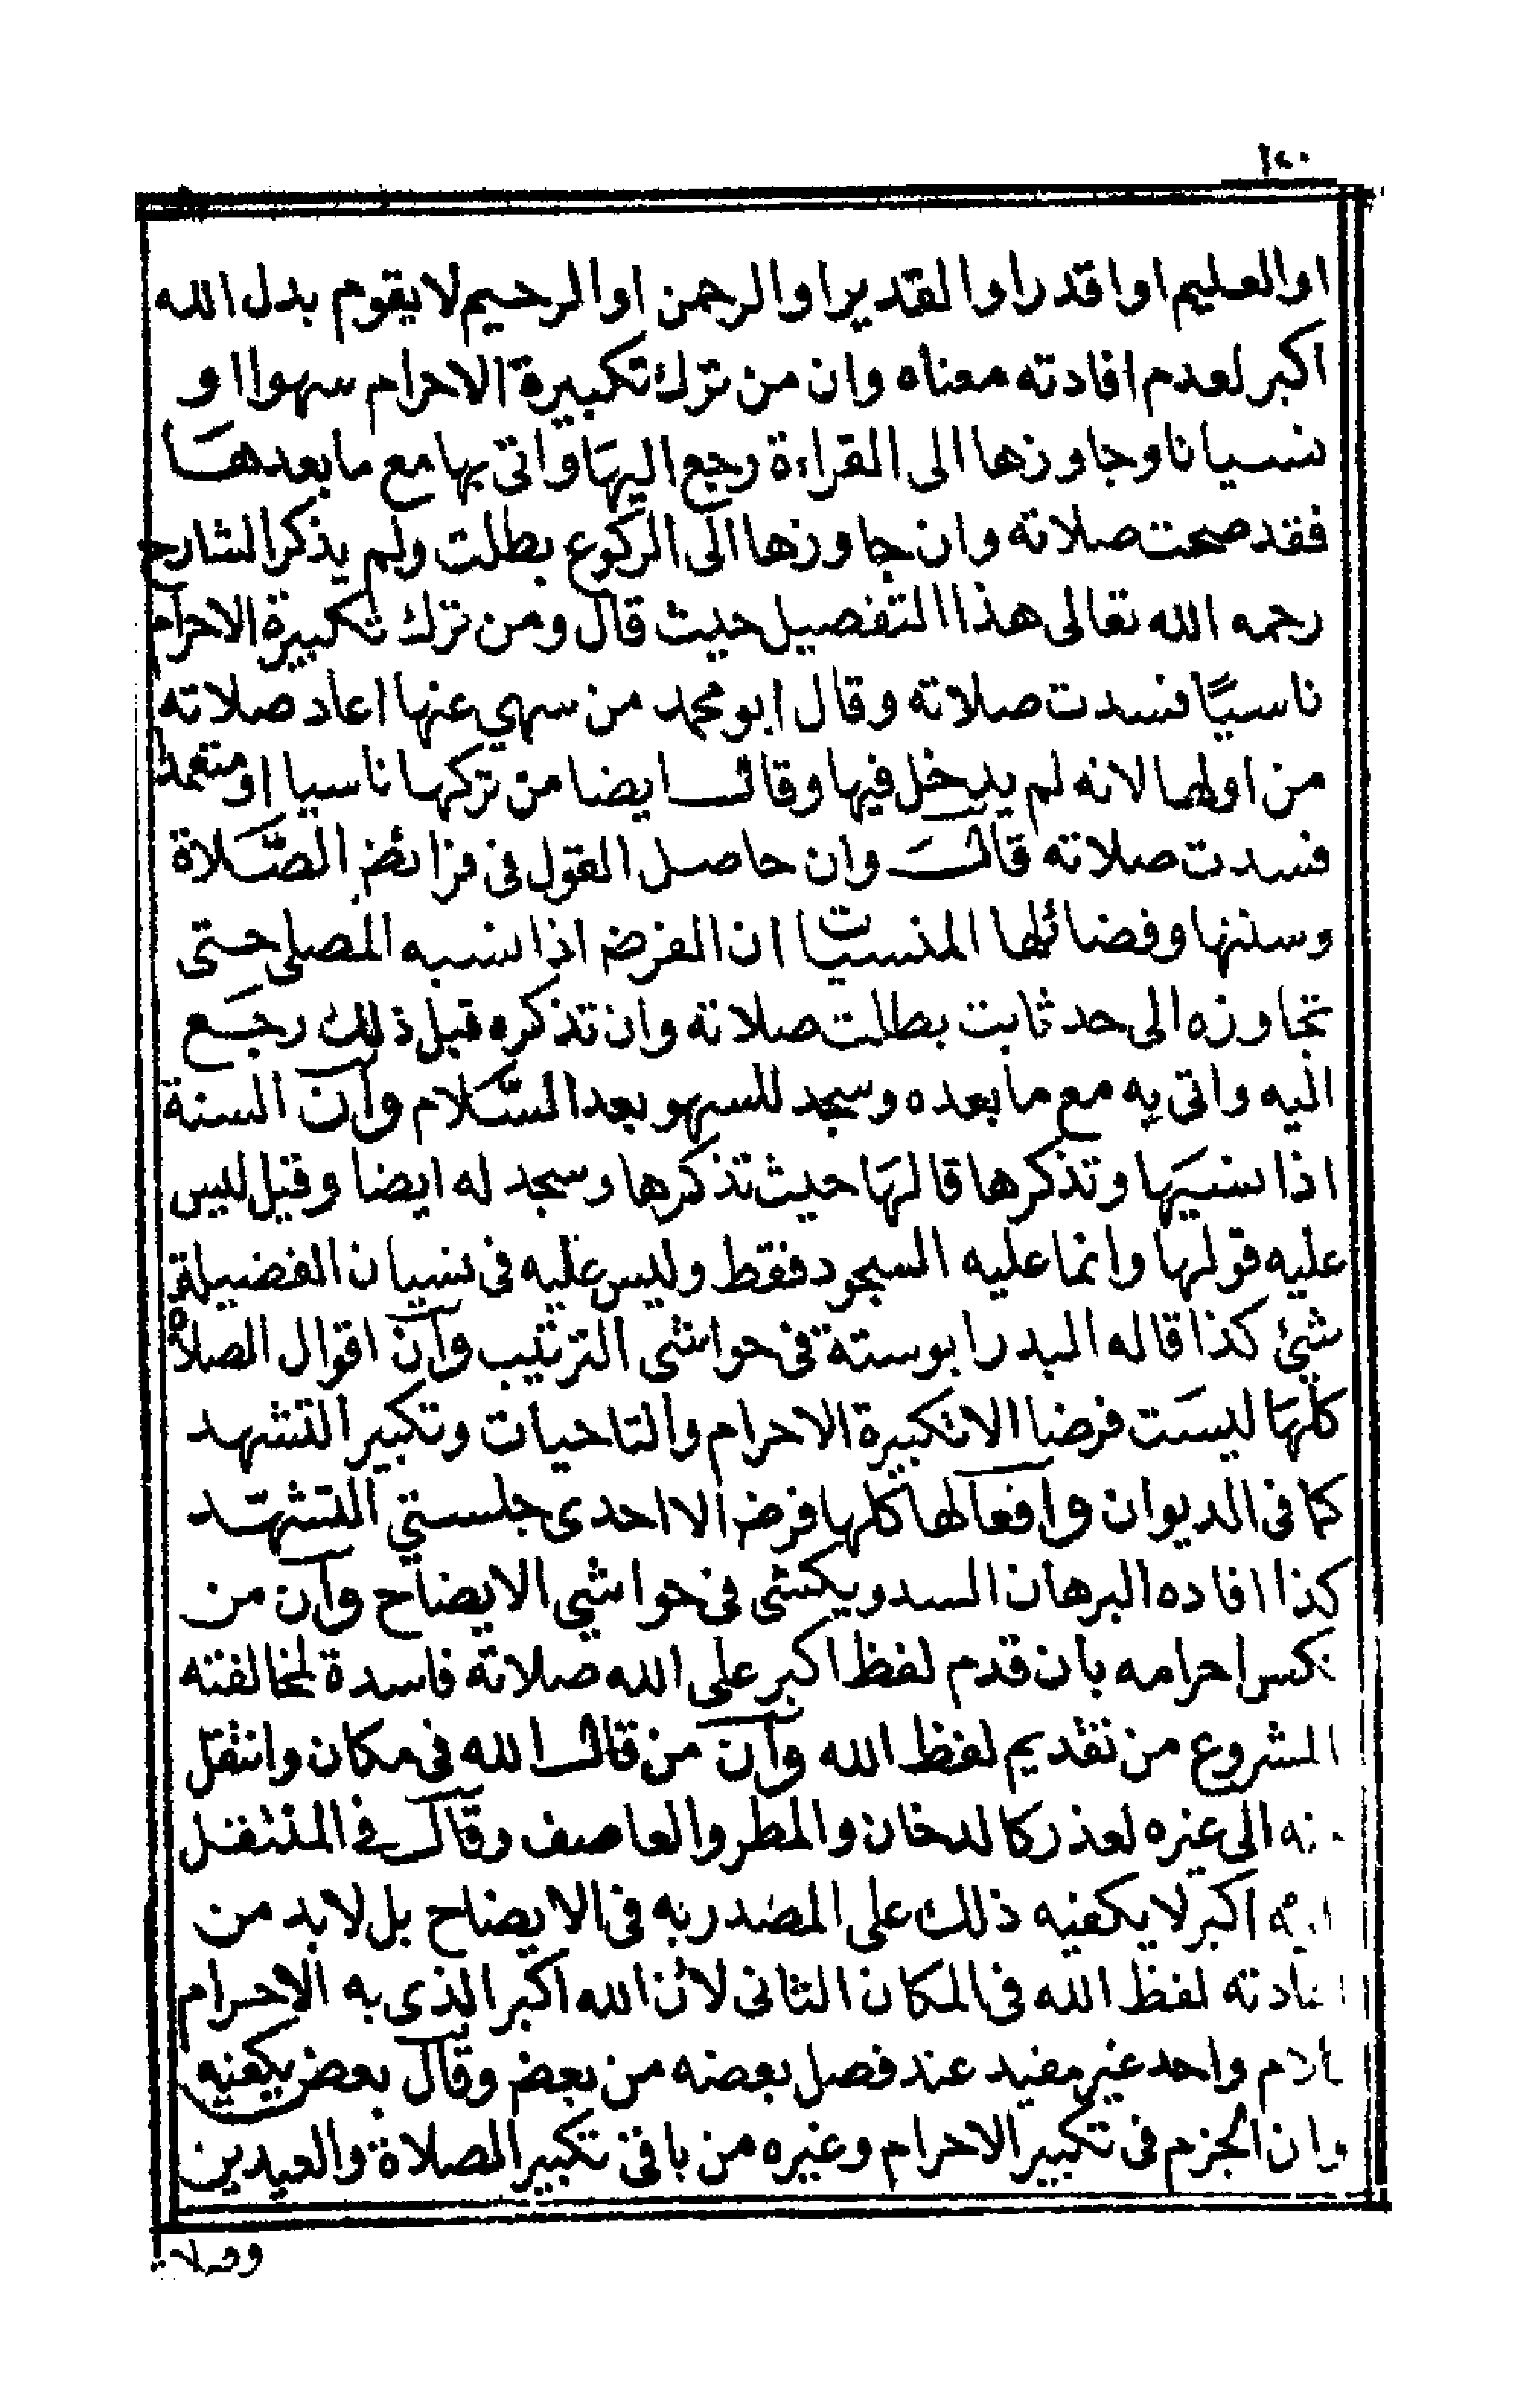 ١٢٠
او العليم او اقدر او القدير او الرحمن او الرحيم لا يقوم بدل الله
اكبر لعدم افادته معناه وان من ترك تكبيرة الاحرام سهوا او
نسيانا وجاوزها الى القراءة رجع اليها واتى بها مع ما بعدها
فقد صحت صلاته وان جاوزها الى الركوع بطلت ولم يذكر الشارح
رحمه الله تعالى هذا التفصيل حيث قال ومن ترك تكبيرة الاحرام
ناسيًا فسدت صلاته وقال ابو محمد من سهي عنها اعاد صلاته
من اولها لانه لم يدخل فيها وقال ايضا من تركها ناسيا او متعمدا
فسدت صلاته قال وان حاصل القول في فرائض الصَّلاة
وسننها وفضائلها المنسيات ان الفرض اذا نسيه المصلي حتى
تجاوزه الى حد ثابت بطلت صلاته وان تذكره قبل ذلك رجع
اليه واتى به مع ما بعده وسجد للسهو بعد السَّلام وان السنة
اذا نسيها وتذكرها قالها حيث تذكرها وسجد له ايضا وقيل ليس
عليه قولها وانما عليه السجود فقط وليس عليه في نسيان الفضيلة
شئ كذا قاله البدر ابوستة في حواشى الترتيب وان اقوال الصلاة
كلها ليست فرضا الا تكبيرة الاحرام والتاحيات وتكبير التشهد
كما في الديوان وافعالها كلها فرض الا احدى جلستي التشهّد
كذا افاده البرهان السدويكشى في حواشي الايضاح وان من
نكس احرامه بان قدم لفظ اكبر على الله صلاته فاسدة لمخالفته
المشروع من تقديم لفظ الله وان من قال الله في مكان وانتقل
منه الى غيره لعذر كالدخان والمطر والعاصف وقال في المنتقل
اليه اكبر لا يكفيه ذلك على المصدر به في الايضاح بل لا بد من
اعادته لفظ الله في المكان الثانى لأن الله اكبر الذى به الاحرام
كلام واحد غير مفيد عند فصل بعضه من بعض وقال بعض يكفيه
وان الجزم في تكبير الاحرام وغيره من باقى تكبير الصلاة والعيدين
وصلاة